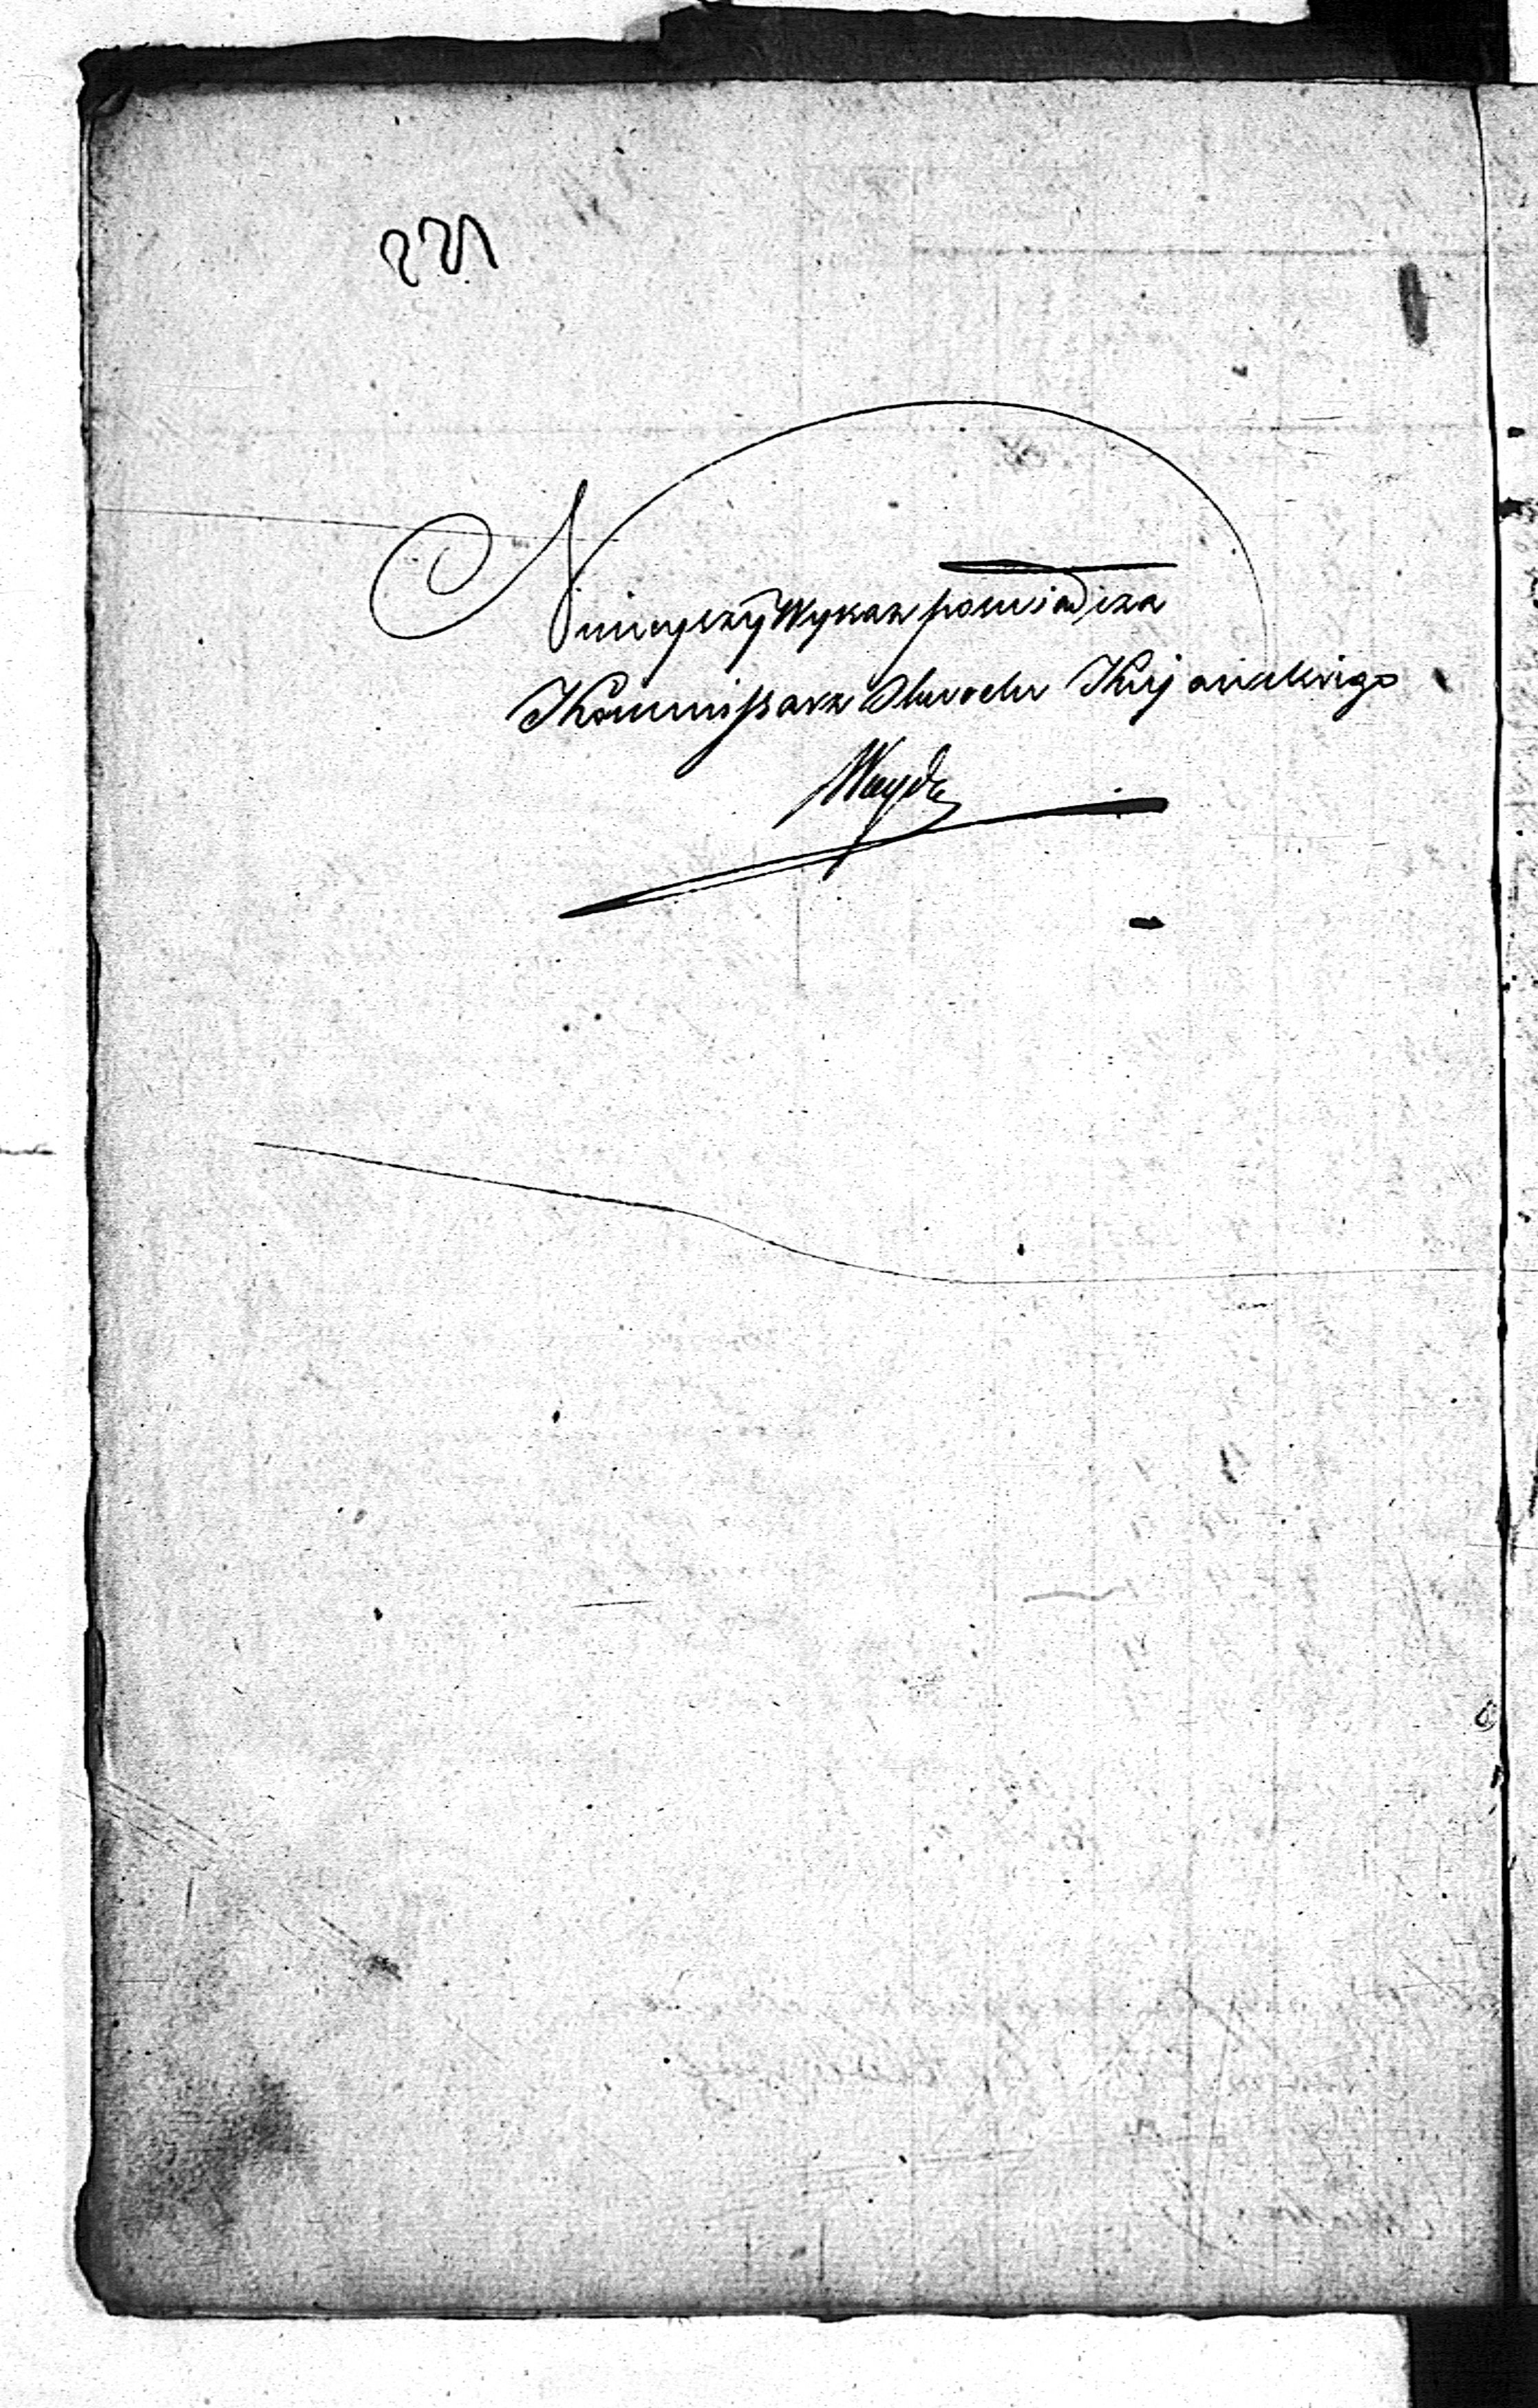 221
Ninieyszy Wykaz poswiadcza
Kommissarz Obwodu Kujawskiego
Wayda